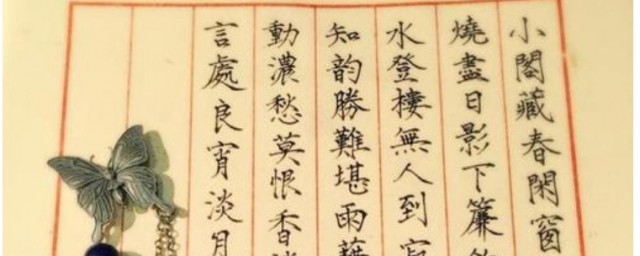 小閣藏春閑窗
燒盡日影下簾
水登樓無人到
知韵勝難堪雨藉
動濃愁莫恨香
言處良宵淡月